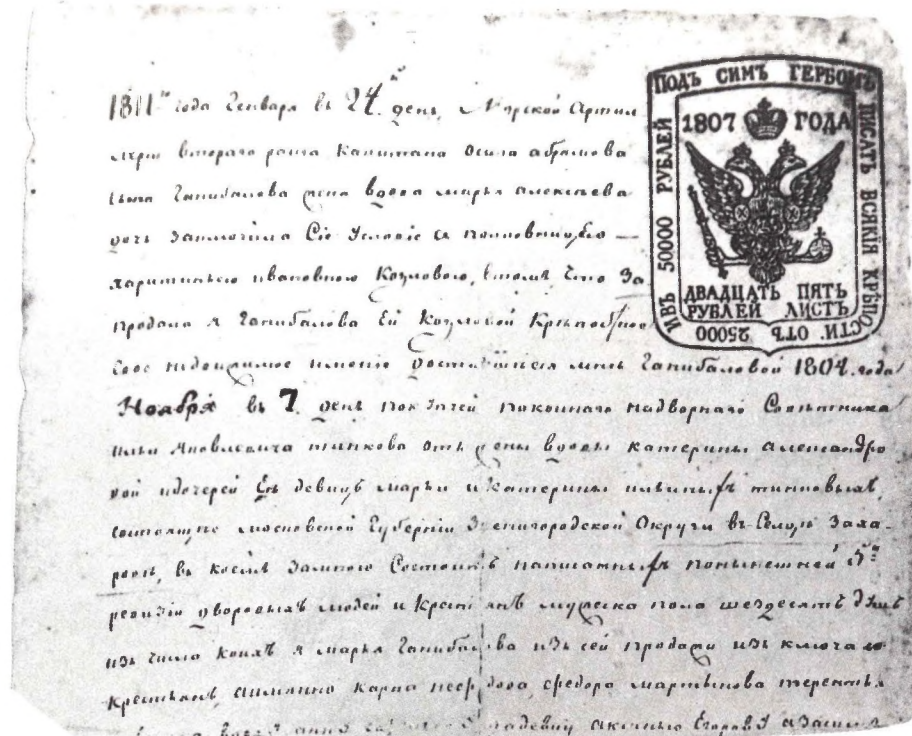 ПОДЪ СИМЪ ГЕРБОМЪ ПИСАТЬ ВСЯКІЯ КРѢПОСТИ. ОТЪ 25000 И ВЪ 50000 РУБЛЕЙ
1807 ГОДА
ДВАДЦАТЬ ПЯТЬ
РУБЛЕЙ ЛИСТЪ
1811го года Генваря въ 24й день, Морской Артил
лерии втораго ранга Капитана Осипа абрамова
сына Ганибалова жена вдова марья алексѣева
дочь заключила Сіе Условіе съ полковницею
харитиньею ивановною Козловою, втомъ, Что За
продала я Ганибалова Ей Козловой Крѣпостное
Свое недвижимое имение доставшееся мнѣ Ганибаловой 1804. года
Ноября въ 7. день покупкой покойнаго надворнаго Совѣтника
ильи Яковлевича тинкова отъ жены вдовы катерины александро
вой идочерей Ево девицъ марьи и катерины ильиныхъ тинковыхъ,
состоящее московской Губерніи Звенигородской Округи въ Селцѣ Заха-
ровѣ, въ коемъ Замною Состоитъ написанныхъ понынешней 5й
ревизіи дворовыхъ людей и Крестьянъ мужеска пола шездесятъ душъ
изъ числа коихъ я марья Ганибалова изъ сей продажи изъ ключаю
крестьянъ, аимянно карпа федора мартынова терентья
вдову анну девицу аксинью Егорову